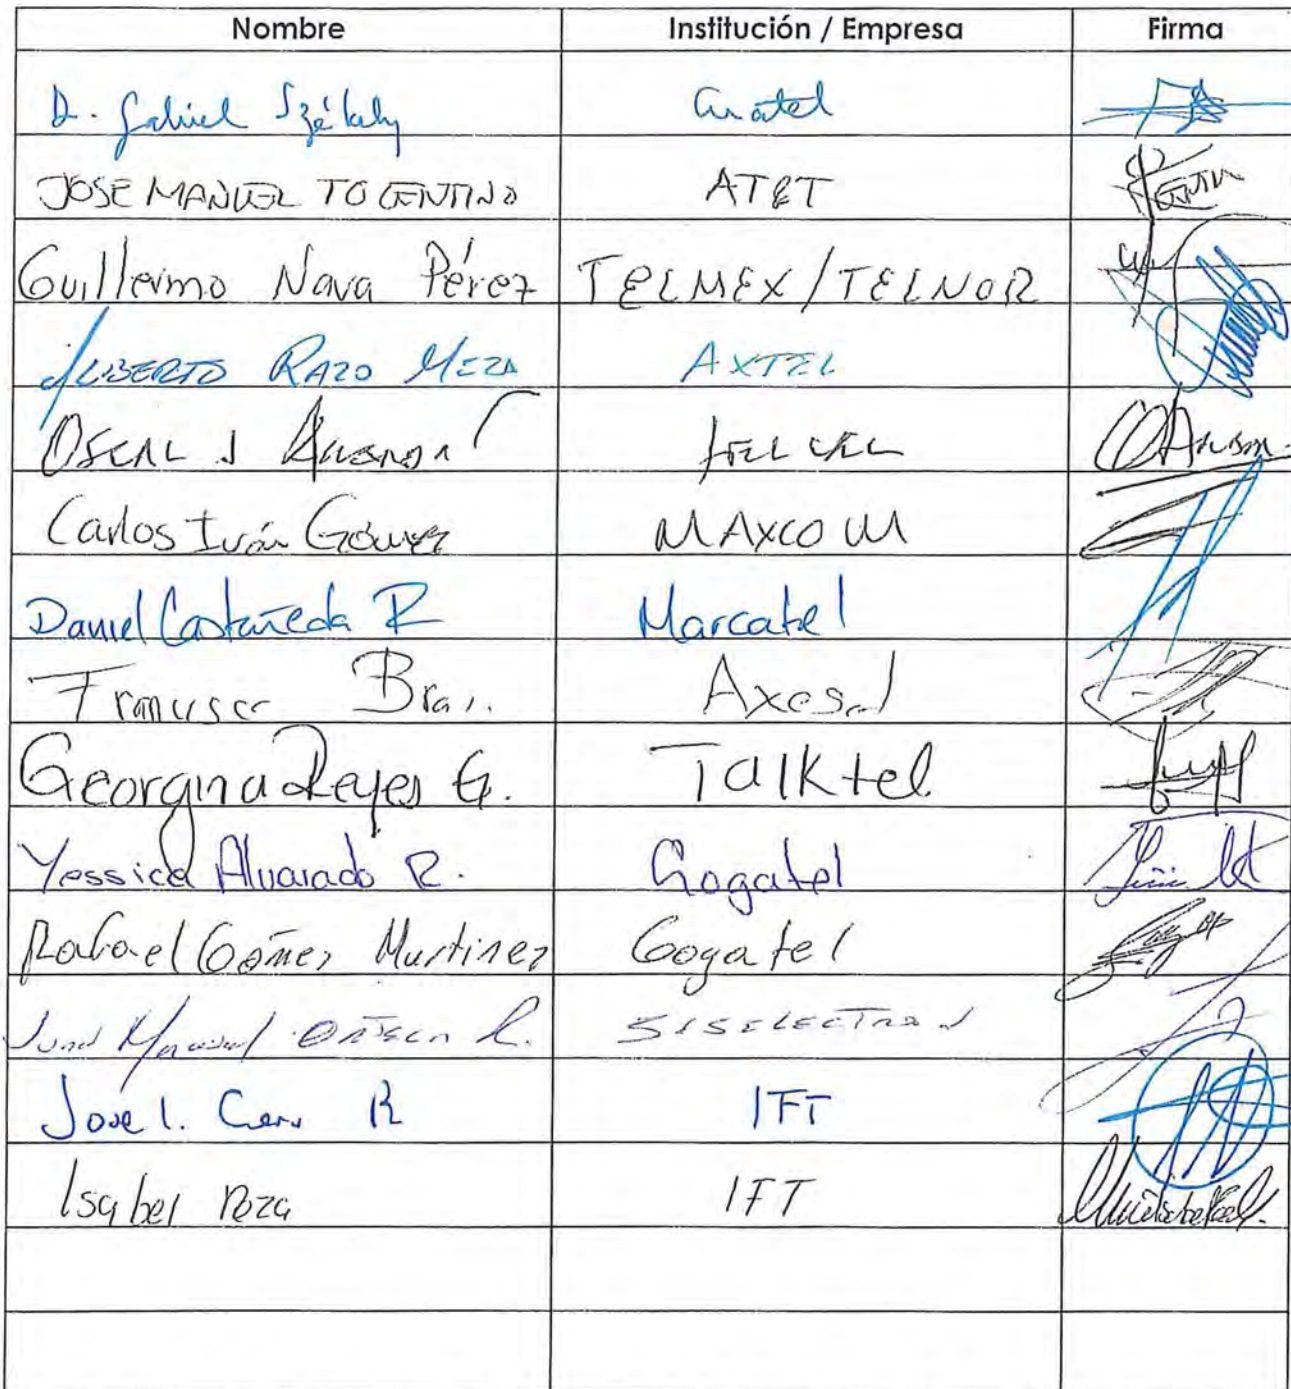 Nombre Institución / Empresa Firma
D. Gabriel Székely Anatel
JOSE MANUEL TOLENTINO AT&T
Guillermo Nava Pérez TELMEX/TELNOR
ALBERTO RAZO MEZA AXTEL
OSCAR J TELCEL
Carlos Iván Gómez MAXCOM
Daniel Castañeda R Marcatel
Francisco Axesat
Georgina Reyes G. Talktel
Yessica Alvarado R. Gogatel
Rafael Gómez Martinez Gogatel
Juan Manuel R. SISELECTRON
Jose I. R IFT
Isabel Reza IFT